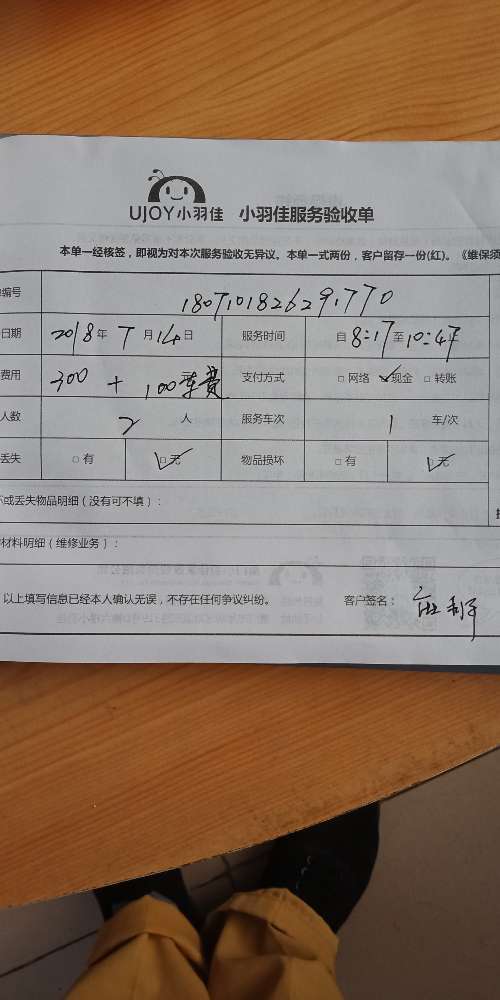 UJOY小羽佳 小羽佳服务验收单
本单一经核签，即视为对本次服务验收无异议。本单一式两份，客户留存一份(红)。《维保须
编号 180710182629,770
日期 2018年7月14日 服务时间 自8:17至10:47
费用 300 + 100车费 支付方式 □网络 ✓现金 □转账
人数 2人 服务车次 1 车/次
丢失 □有 ☑无 物品损坏 □有 ☑无
或丢失物品明细（没有可不填）：
材料明细（维修业务）：
以上填写信息已经本人确认无误，不存在任何争议纠纷。 客户签名：